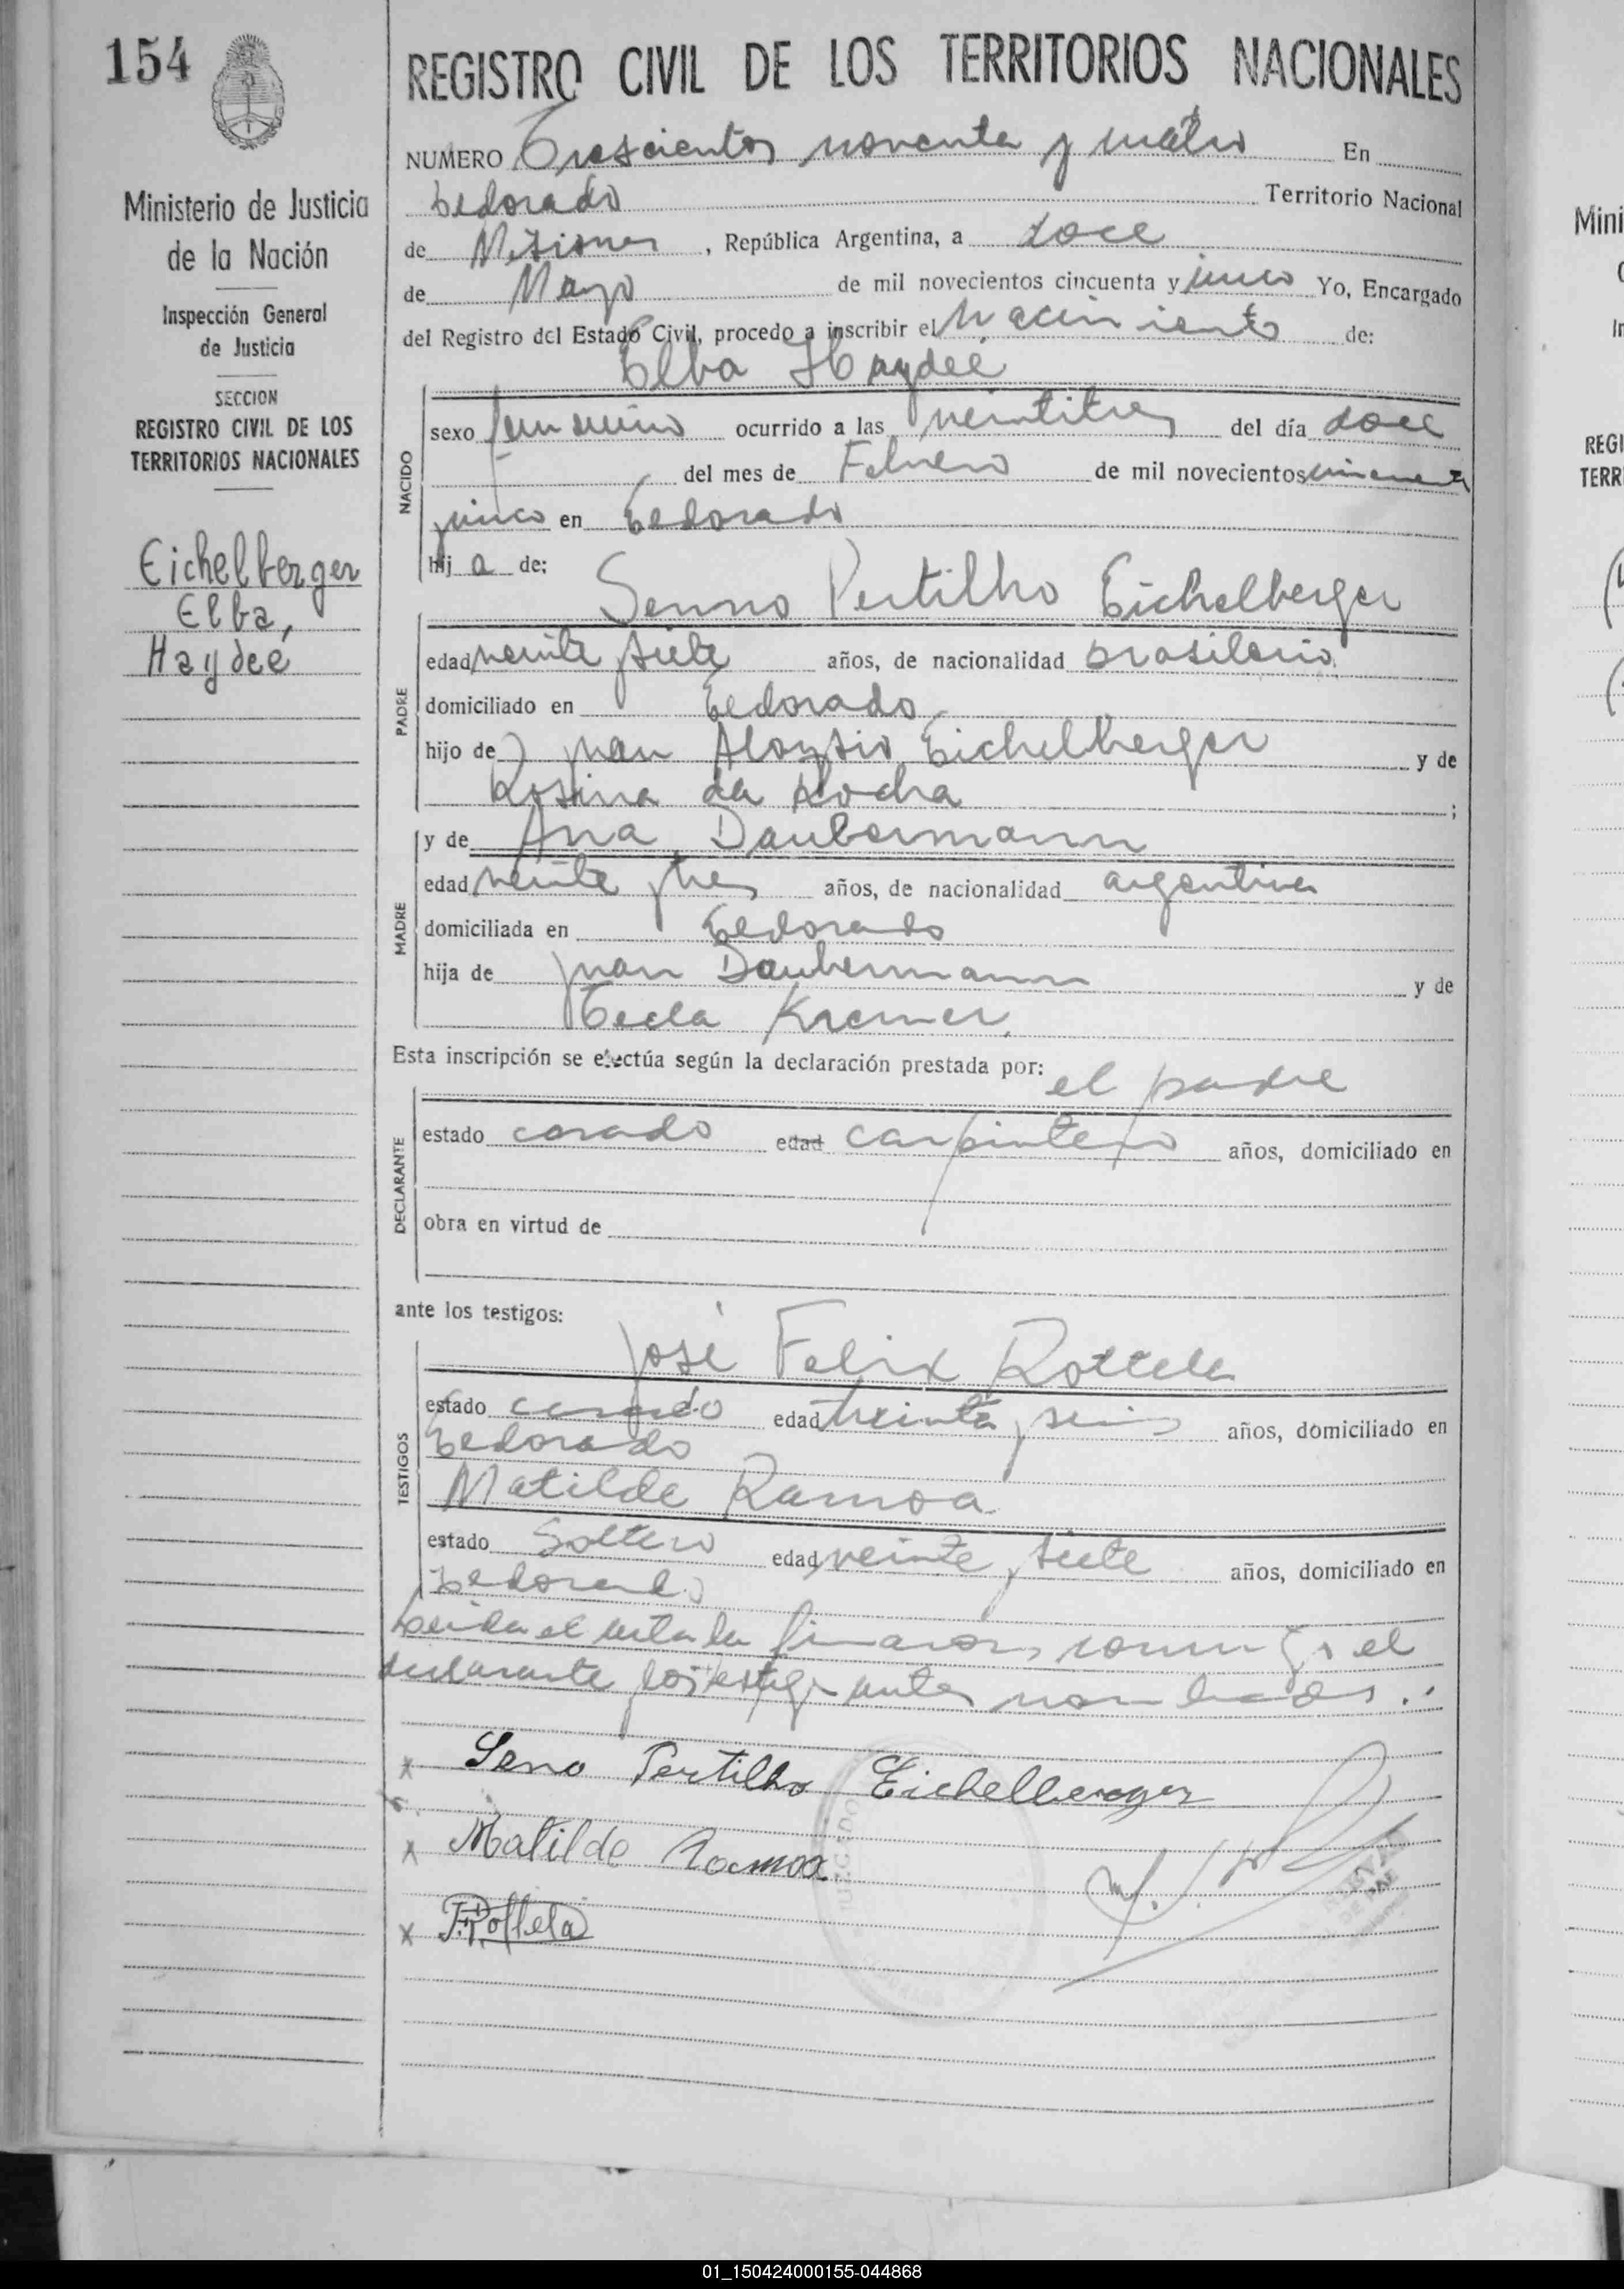 154
REGISTRO CIVIL DE LOS TERRITORIOS NACIONALES
Ministerio de Justicia
de la Nación
Inspección General
de Justicia
SECCION
REGISTRO CIVIL DE LOS
TERRITORIOS NACIONALES
Eichelberger
Elba,
Haydeé
NUMERO Trescientos noventa y cuatro En
Eldorado Territorio Nacional
de Misiones, República Argentina, a doce
de Mayo de mil novecientos cincuenta y cinco Yo, Encargado
del Registro del Estado Civil, procedo a inscribir el Nacimiento de:
Elba Haydeé
NACIDO
sexo femenino ocurrido a las veintitres del día doce
del mes de Febrero de mil novecientos cincuenta
y cinco en Eldorado
hij a de:
Senno Pertilho Eichelberger
PADRE
edad veinte y siete años, de nacionalidad brasilerio
domiciliado en Eldorado
hijo de Juan Aloysio Eichelberger y de
Rosina da Rocha ;
y de Ana Daubermann
MADRE
edad veinte y tres años, de nacionalidad argentina
domiciliada en Eldorado
hija de Juan Daubermann y de
Tecla Kremer
Esta inscripción se efectúa según la declaración prestada por: el padre
DECLARANTE
estado casado edad carpintero años, domiciliado en
obra en virtud de
ante los testigos:
José Felix Rottela
TESTIGOS
estado casado edad treinta y seis años, domiciliado en
Eldorado
Matilde Ramoa
estado Soltero edad veinte y siete años, domiciliado en
Eldorado
Leida el acta la firmaron, conmigo el
declarante y los testigos antes nombrados.
x Seno Pertilho Eichelberger
x Matilde Ramoa
x F. Rottela
Mini
REGI
TERR
01_150424000155-044868